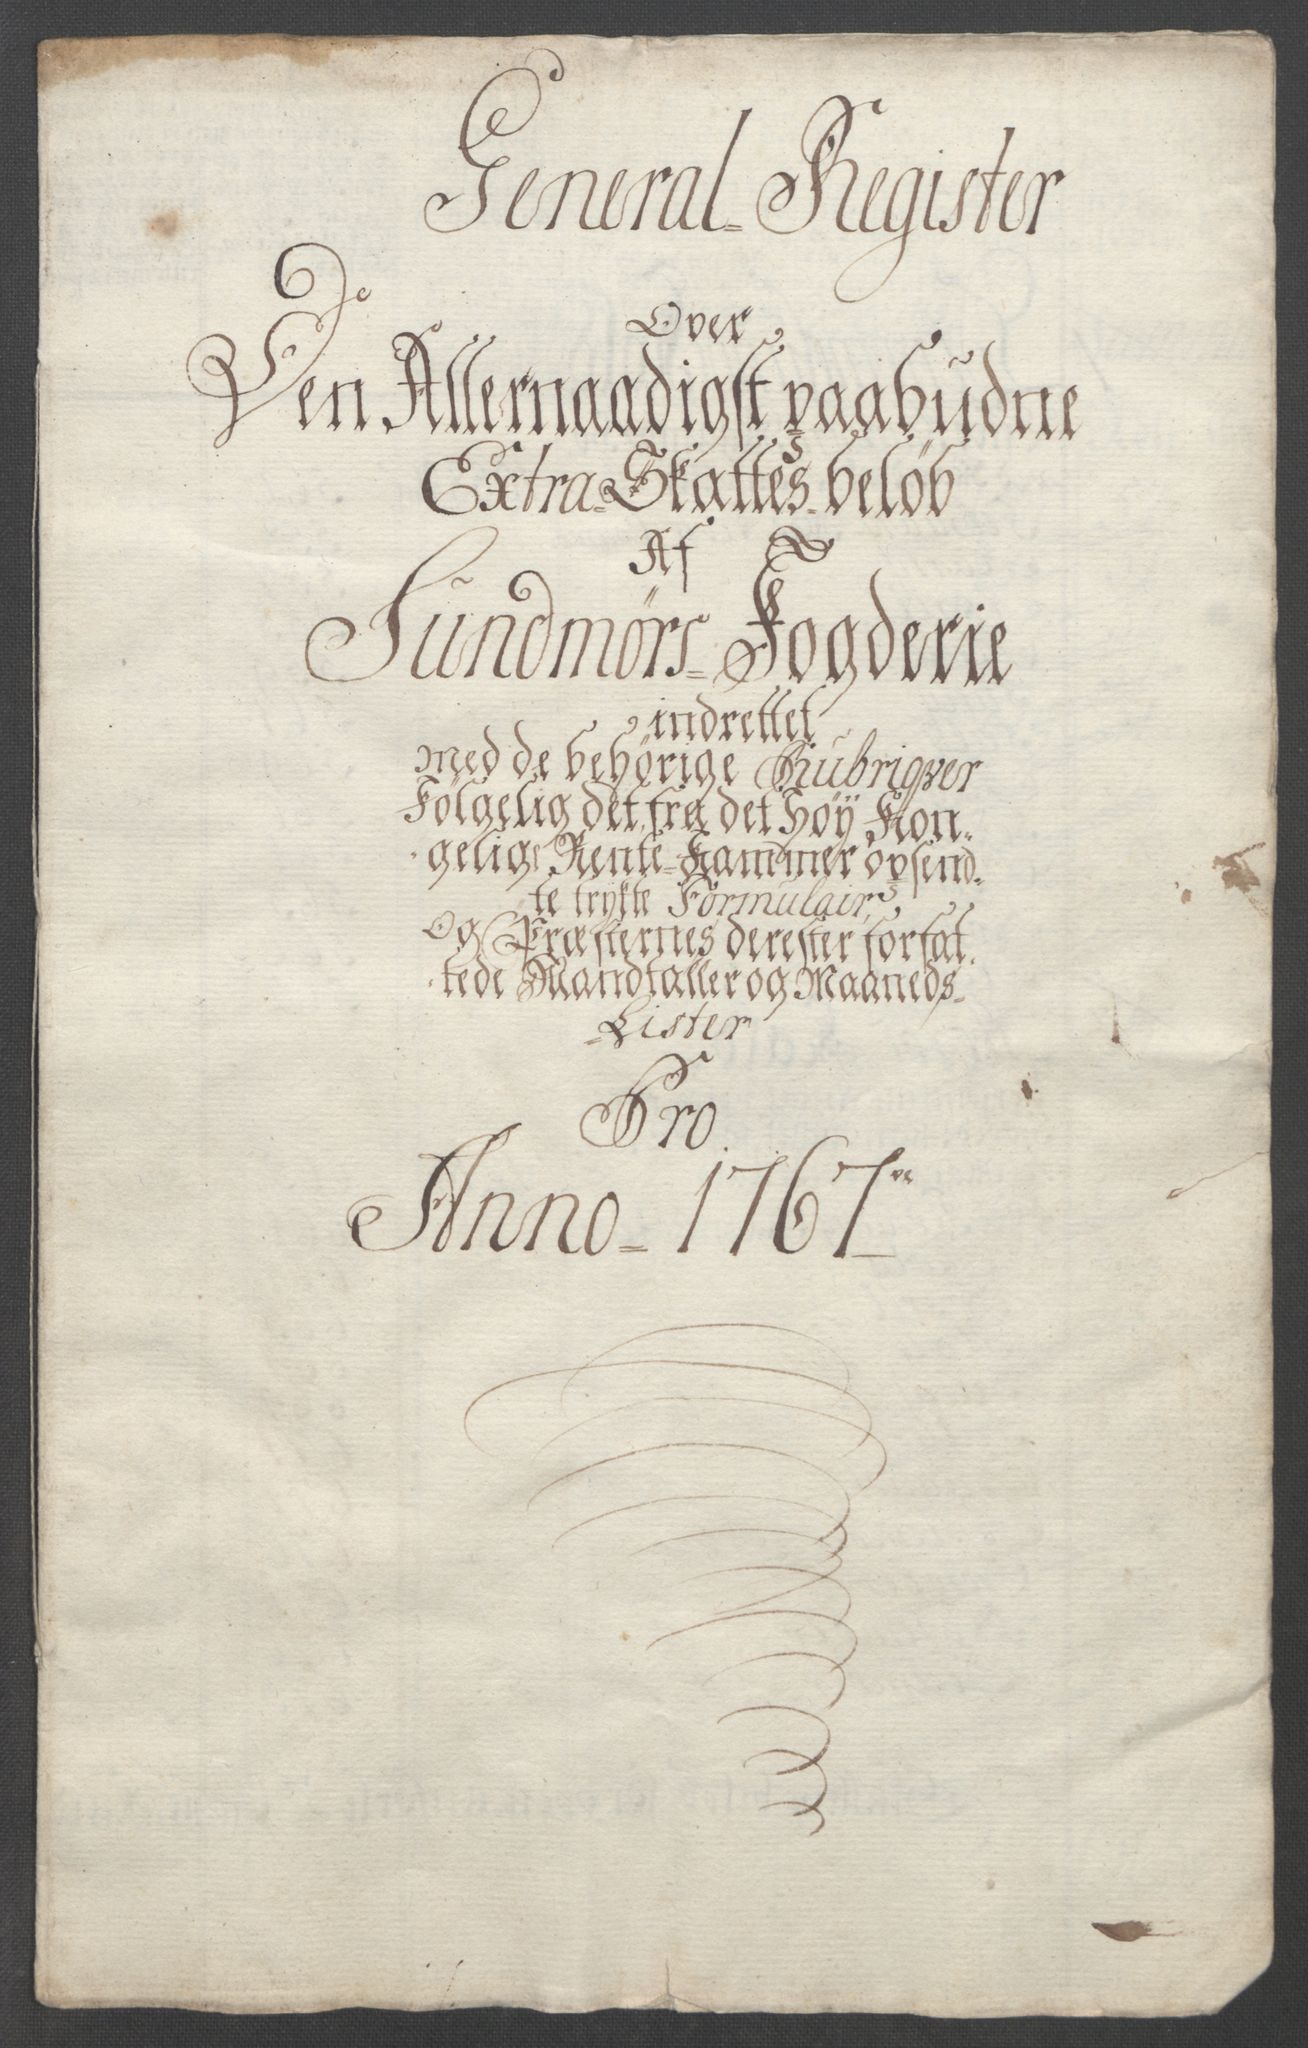 General- Register
Over
Den Allernaadigst paabudne
Extra-Skattes-beløb
Af
Sundmørs- Fogderie
indrettet
Med de behørige Rubriqver
Følgelig det fra det Høÿ Kon-
gelige Rente-Kammer opsend-
te trykte Formulair,
Og Præsternes derefter forfat-
tede Mandtaller og Maaneds-
-Lister
Pro
Anno- 1767